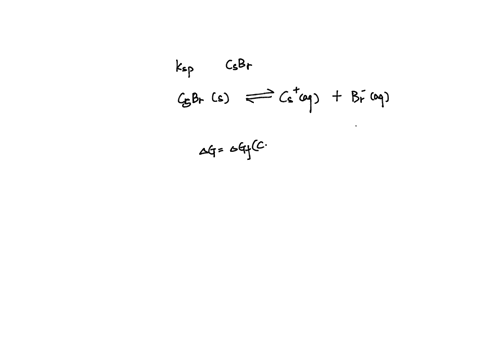 Ksp CsBr
CsBr (s) ⇌ Cs⁺(aq) + Br⁻(aq)
ΔG = ΔGf(C